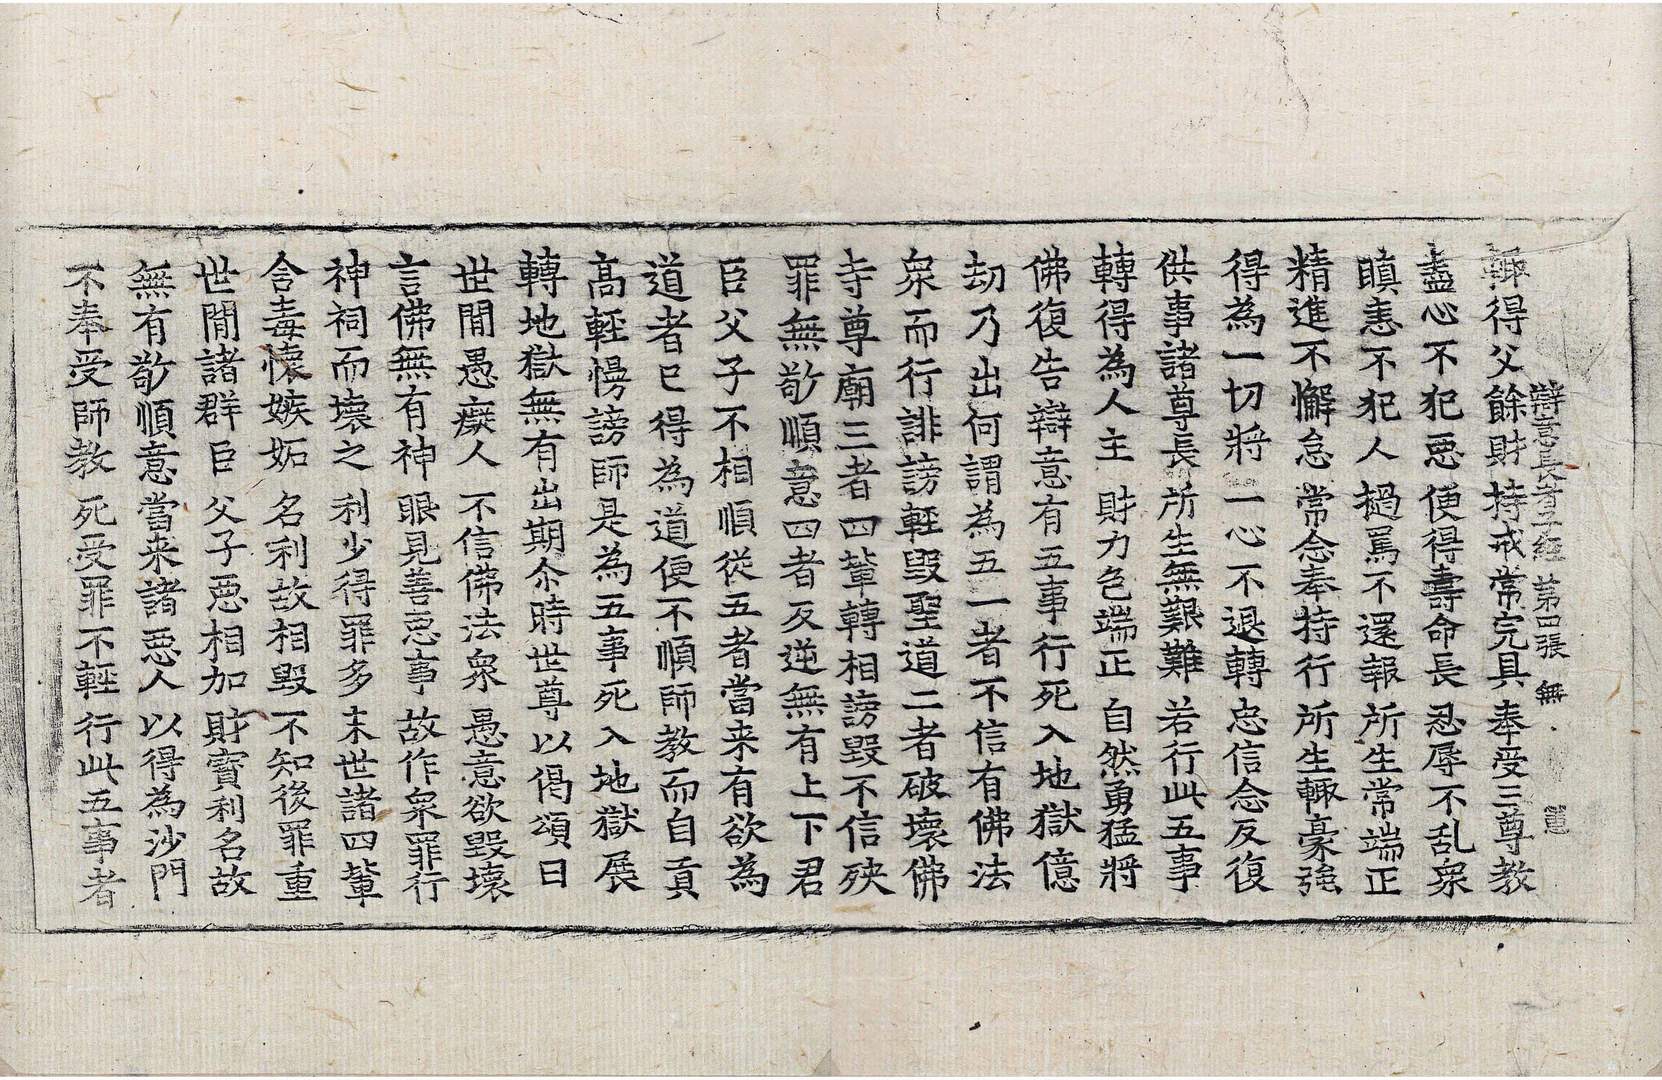 辯意長者子經 第四張 無
輙得父餘財 持戒常完具 奉受三尊教
盡心不犯惡 便得壽命長 忍辱不乱衆
瞋恚不犯人 撾罵不還報 所生常端正
精進不懈怠 常念奉持行 所生輙豪強
得為一切將 一心不退轉 忠信念反復
供事諸尊長 所生無艱難 若行此五事
轉得為人主 財力色端正 自然勇猛將
佛復告辯意有五事行死入地獄億
劫乃出何謂為五一者不信有佛法
衆而行誹謗輕毀聖道二者破壞佛
寺尊廟三者四輩轉相謗毀不信殃
罪無敬順意四者反逆無有上下君
臣父子不相順從五者當来有欲為
道者已得為道便不順師教而自貢
高輕慢謗師是為五事死入地獄展
轉地獄無有出期尒時世尊以偈頌曰
世閒愚癡人 不信佛法衆 愚意欲毀壞
言佛無有神 眼見善惡事 故作衆罪行
神祠而壞之 利少得罪多 末世諸四輩
含毒懷嫉妬 名利故相毀 不知後罪重
世閒諸群臣 父子惡相加 財寶利名故
無有敬順意 當来諸惡人 以得為沙門
不奉受師教 死受罪不輕 行此五事者